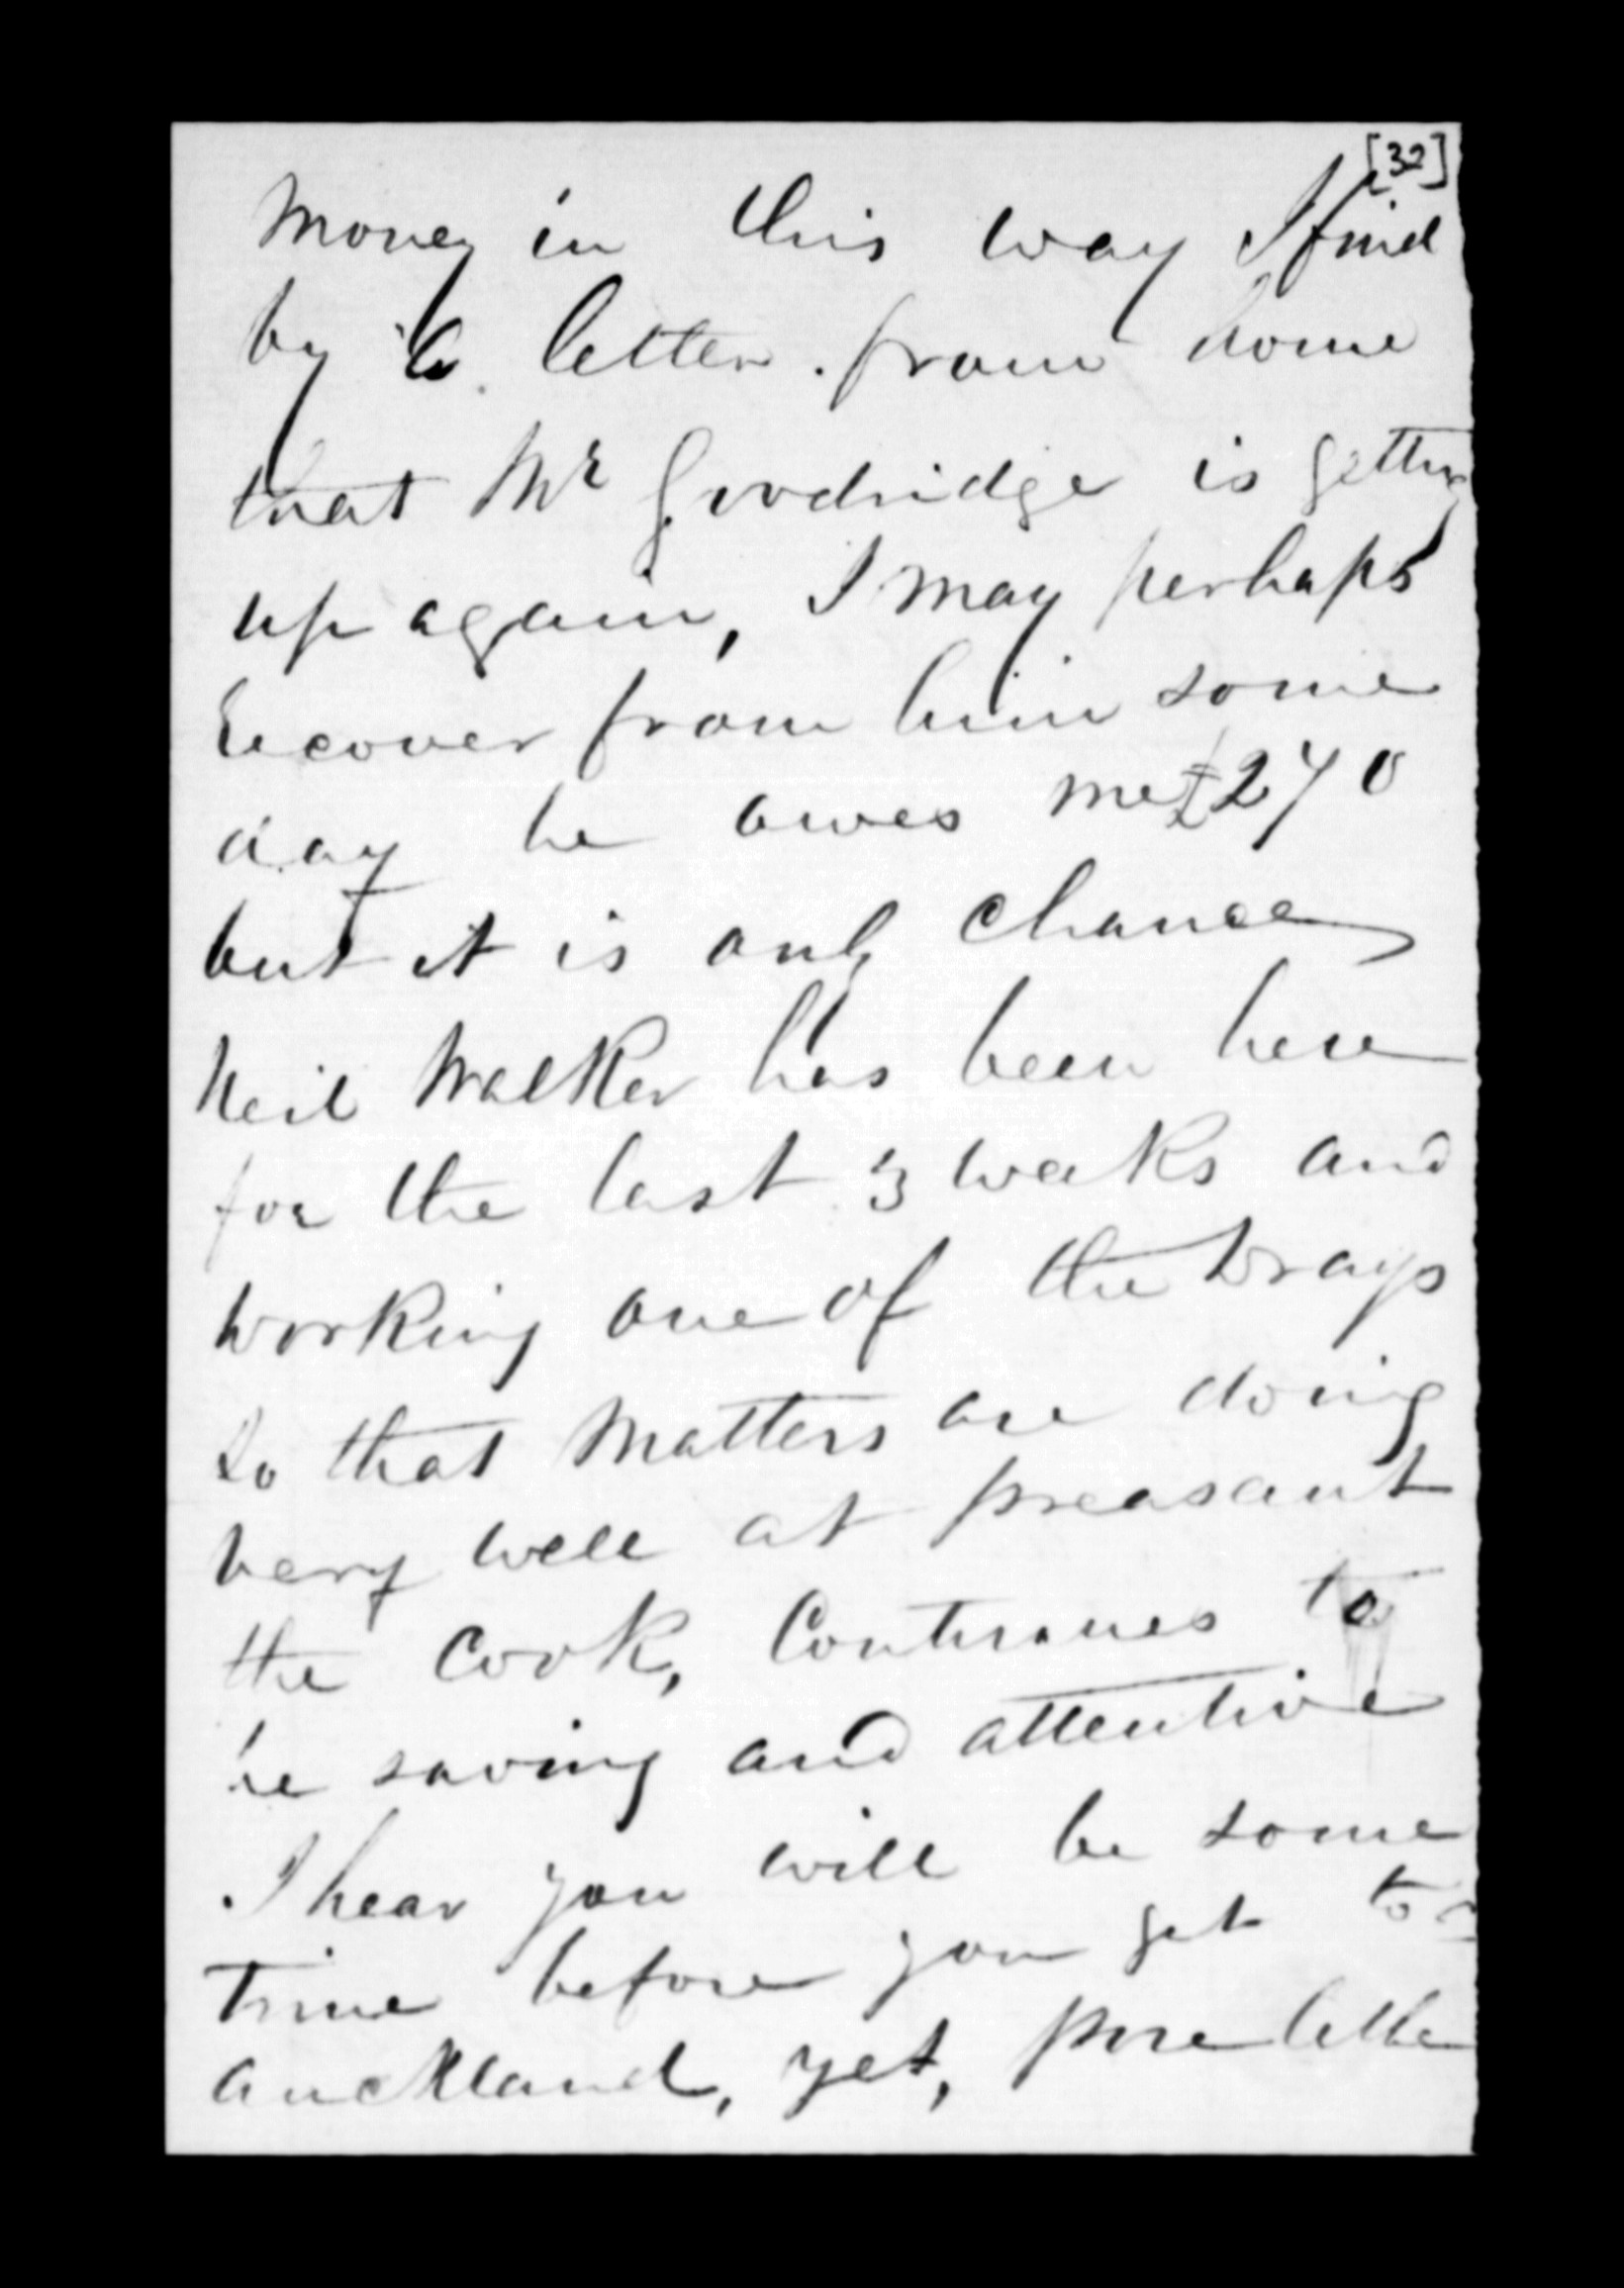 [32]
Money in this way I find
by a letter from home
that Mr Goodridge is getting
up again, I may perhaps
recover from him some
day he owes me £270
but it is only chance
Neil Walker has been here
for the last 3 weeks and
working one of the Drays
So that Matters are doing
very well at preasant
the Cook, Continues to
be saving and attentive
I hear you will be some
time before you get to
auckland, yet,